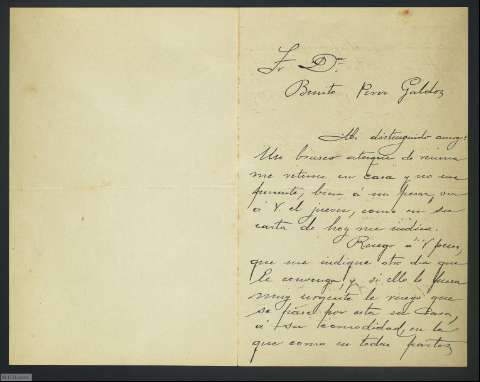 Sr Dn.
Benito Perez Galdoz
Mi distinguido amigo:
Un brusco ataque de reuma
me retiene en casa y no me
permite, bien á mi pesar, ver
á V el jueves, como en su
carta de hoy me indica.
Ruego á V pues,
que me indique otro dia que
le convenga, y si ello le fuera
muy urgente le ruego que
se pase por esta su casa,
á su comodidad, en la
que como en todas partes